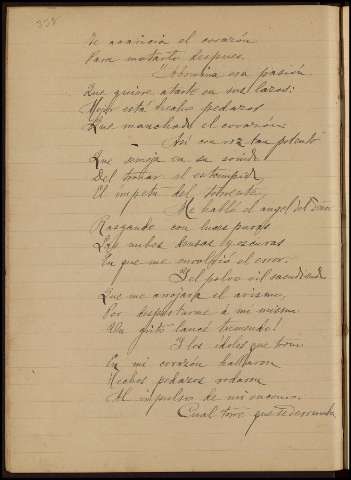 338
Te acaricia el corazón
Para matarte despues.
"Abomina esa pasión
Que quiere atarte en sus lazos:
Mejor está hecho pedazos
Que manchado el corazón
Así con voz tan potente
Que semeja en su sonido
Del trueno el estampido
El ímpetu del torrente,
Me habló el angel del
Rasgando con luces puras
Las nubes densas y oscuras
En que me envolvió el error.
I el polvo vil sacudiendo
Que me arrojara el abismo,
Por despertarme á mi mismo
Un grito lancé tremendo!
I los idolos que
En mi corazón hallaron
Hechos pedazos rodaron
Al impulso de mi encono.
Cual torre que se derrumba